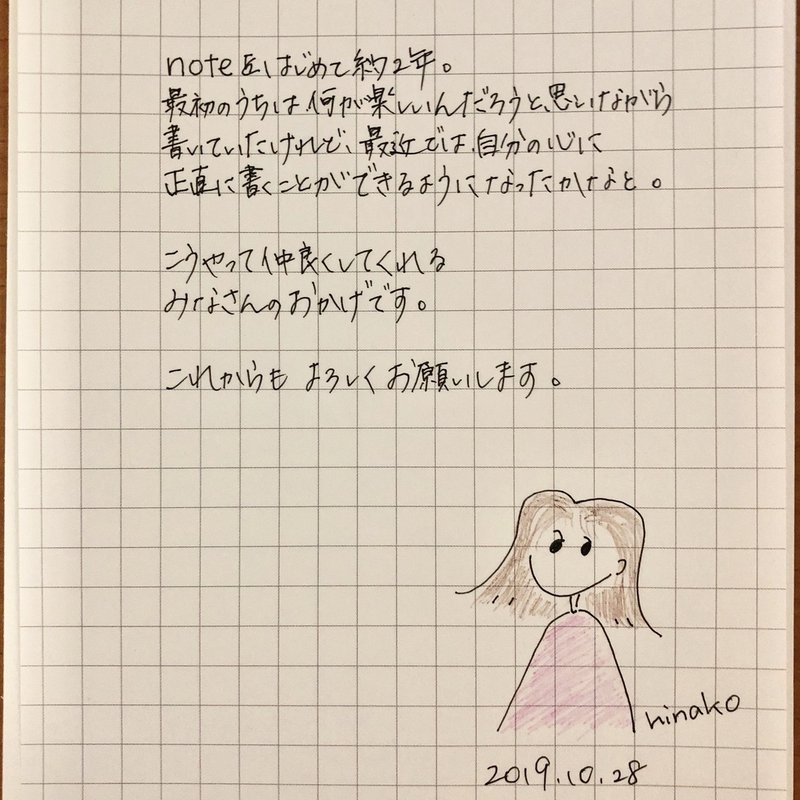 noteをはじめて約2年。
最初のうちは何が楽しいんだろうと、思いながら
書いていたけれど、最近では、自分の心に
正直に書くことができるようになったかなと。
こうやって仲良くしてくれる
みなさんのおかげです。
これからも よろしくお願いします。
ninako
2019.10.28